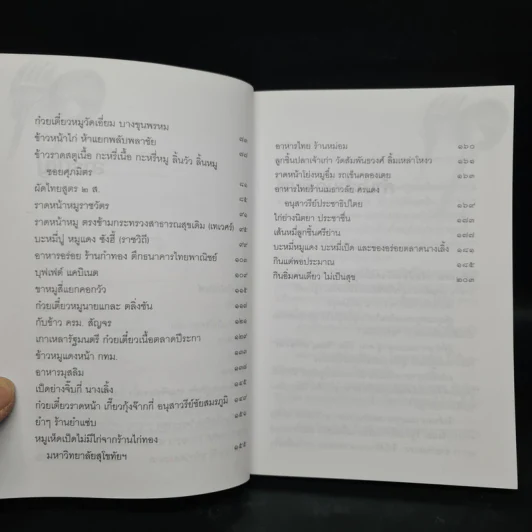 ก๋วยเตี๋ยวหมูวัดเอี่ยม บางขุนพรหม
ข้าวหน้าไก่ ห้าแยกพลับพลาชัย ๗๑
ข้าวราดสตูเนื้อ กะหรี่เนื้อ กะหรี่หมู ลิ้นวัว ลิ้นหมู
ซอยศุภมิตร
ผัดไทยสูตร ๒ ส.
ราดหน้าหมูราชวัตร
ราดหน้าหมู ตรงข้ามกระทรวงสาธารณสุขเดิม (เทเวศร์)
บะหมี่ปู หมูแดง ซังฮี้ (ราชวิถี)
อาหารอร่อย ร้านกำทอง ตึกธนาคารไทยพาณิชย์
บุฟเฟ่ต์ แคบิเนต
ขาหมูสี่แยกคอกวัว ๑๑๕
ก๋วยเตี๋ยวหมูนายแกละ ตลิ่งชัน
กับข้าว ครม. สัญจร
เกาเหลารัฐมนตรี ก๋วยเตี๋ยวเนื้อตลาดปีระกา
ข้าวหมูแดงหน้า กทม.
อาหารมุสลิม
เป็ดย่างจิ๊บกี่ นางเลิ้ง ๑๔๕
ก๋วยเตี๋ยวราดหน้า เกี๊ยวกุ้งจ๊ากกี่ อนุสาวรีย์ชัยสมรภูมิ ๑๔๘
ยำๆ ร้านยำแซ่บ ๑๕๑
หมูเห็ดเป็ดไม่มีไก่จากร้านไก่ทอง ๑๕๕
มหาวิทยาลัยสุโขทัยฯ
อาหารไทย ร้านหม่อม ๑๖๐
ลูกชิ้นปลาเจ้าเก่า วัดสัมพันธวงศ์ ลิ้มเหล่าโหงว ๑๖๑
ราดหน้าโย่งหมูอึ๋ม รถเข็นคลองเตย ๑๖๓
อาหารไทยร้านเมธาวลัย ศรแดง
อนุสาวรีย์ประชาธิปไตย ๑๖๙
ไก่ย่างนิตยา ประชาชื่น
เส้นหมี่ลูกชิ้นศรีย่าน
บะหมี่หมูแดง บะหมี่เป็ด และของอร่อยตลาดนางเลิ้ง ๑๘๑
กินแต่พอประมาณ ๑๘๕
กินอิ่มคนเดียว ไม่เป็นสุข ๒๐๓